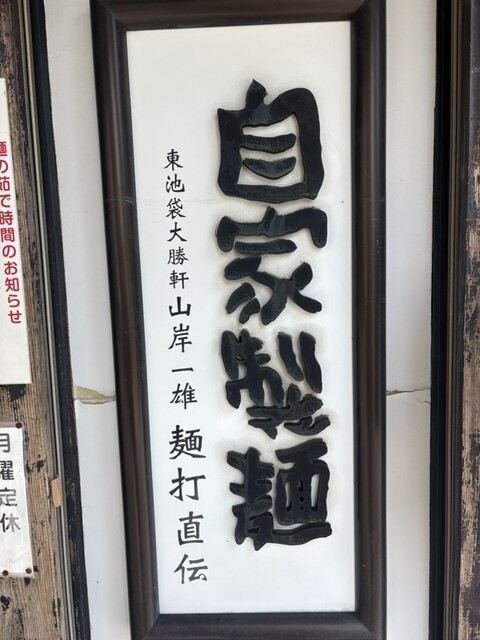 自家製麺
東池袋大勝軒山岸一雄 麺打直伝
麺の茹で時間のお知らせ
月曜定休